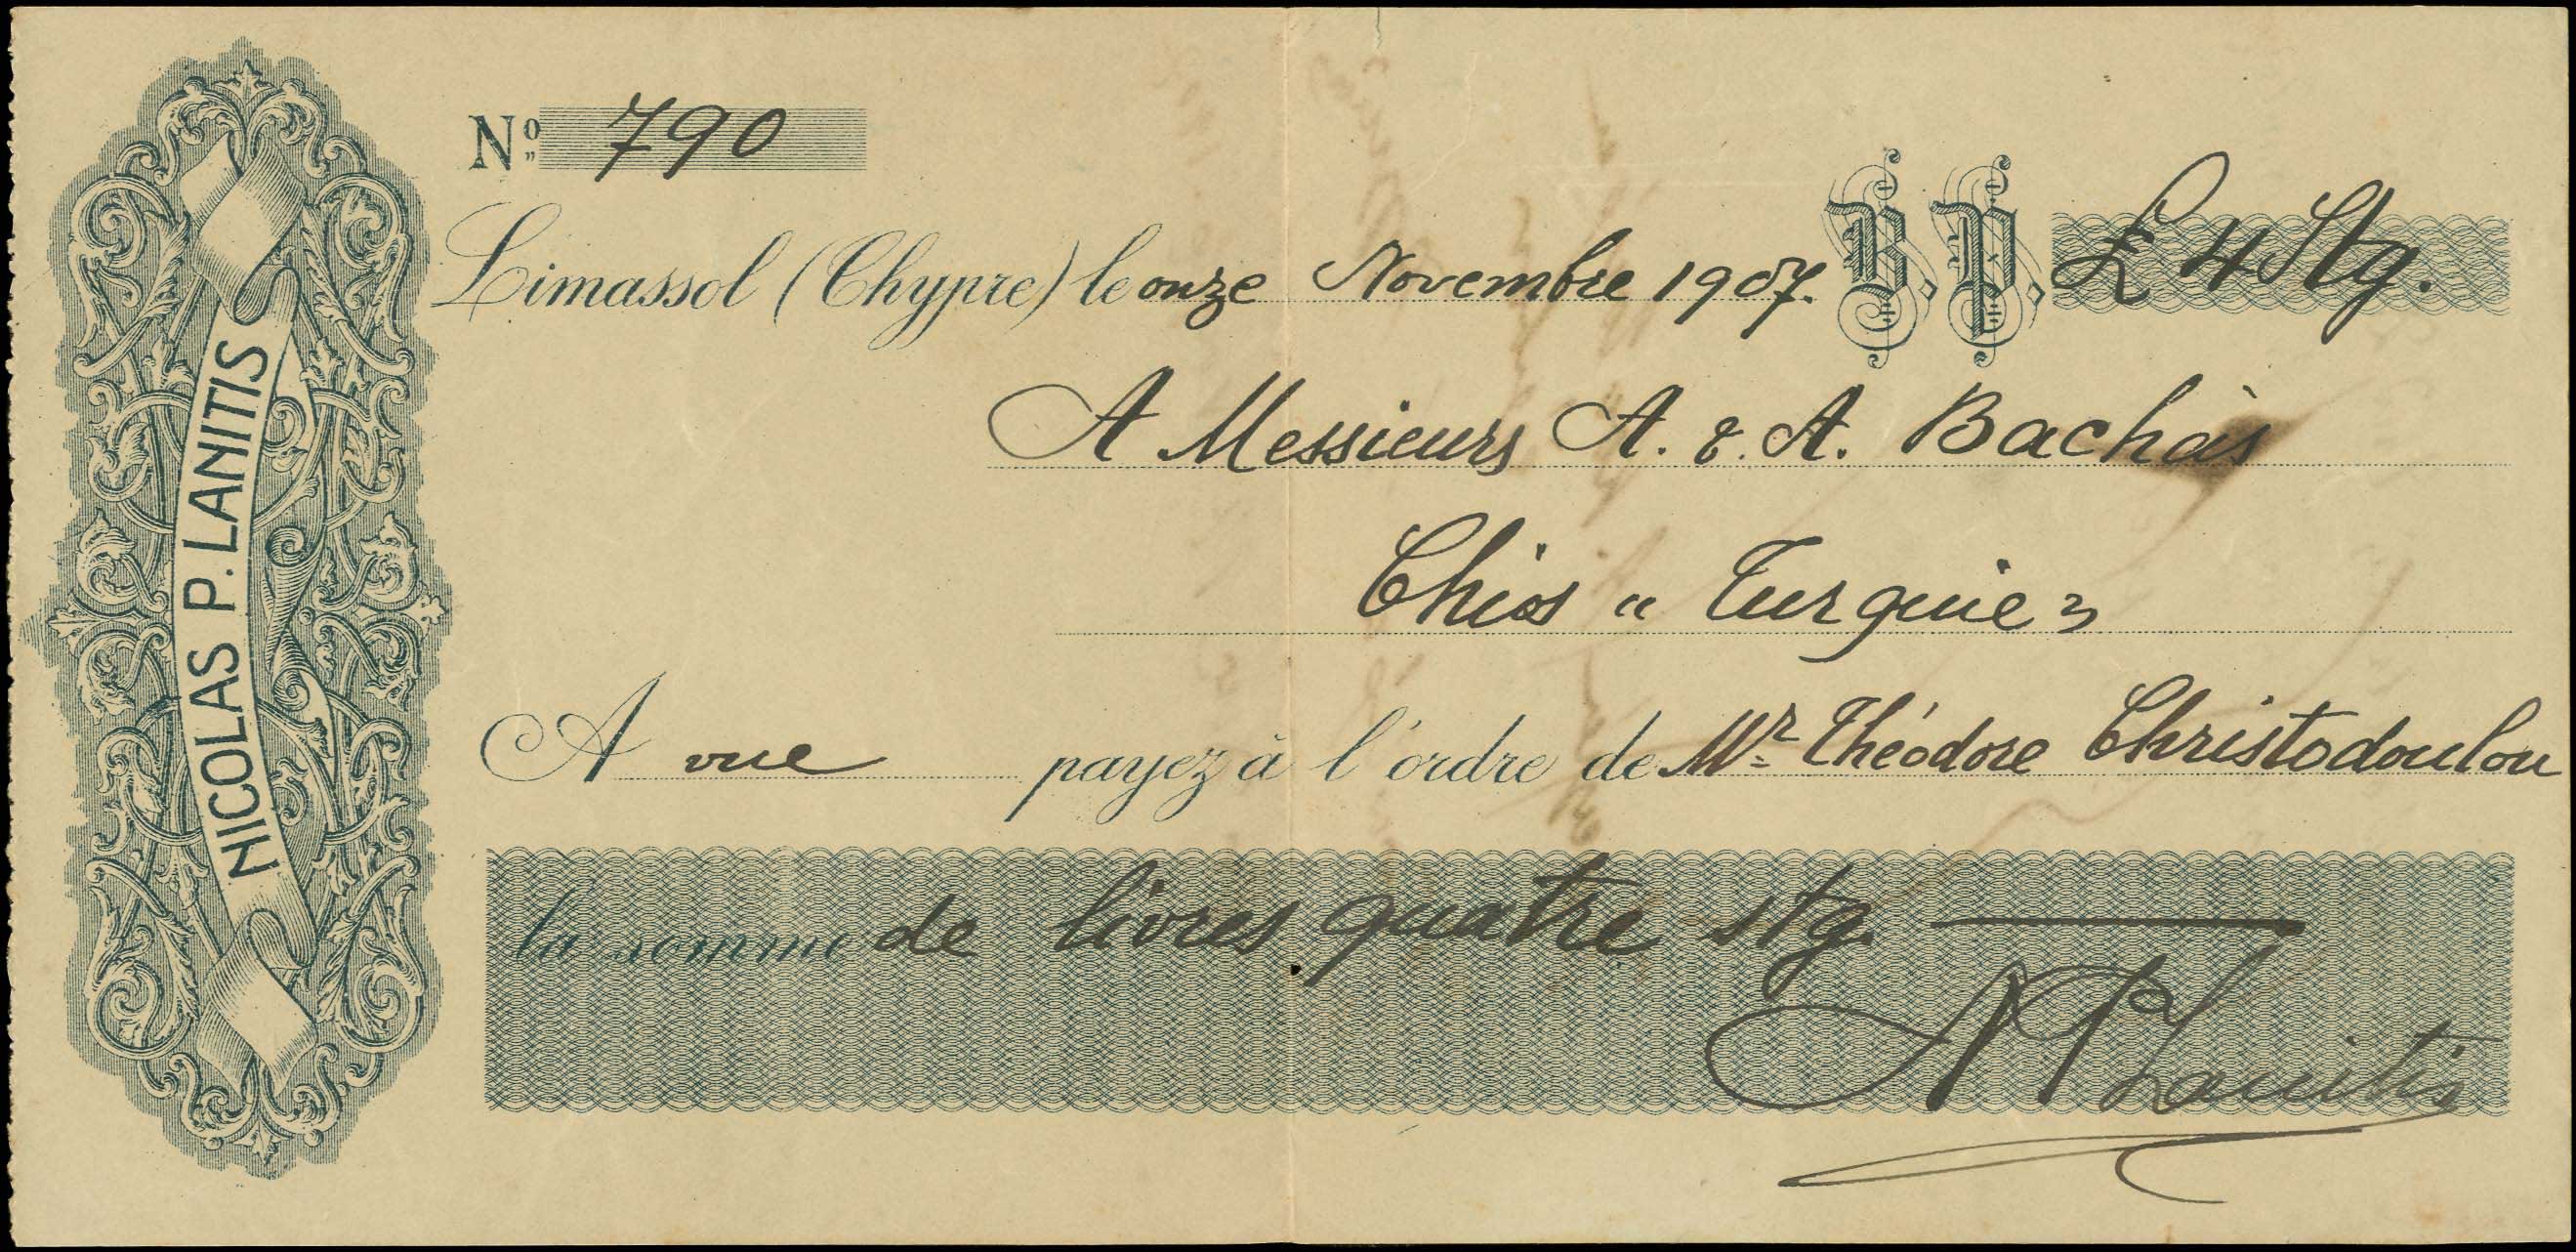 NICOLAS P. LANITIS
Nº 790
Limassol (Chypre) le onze Novembre 1907. B.P. £ 4 Stg.
A Messieurs A. & A. Bachàs
Chios "Turquie"
A vue payez à l'ordre de Mr Théodore Christodoulou
la somme de livres quatre stg.
NPLanitis